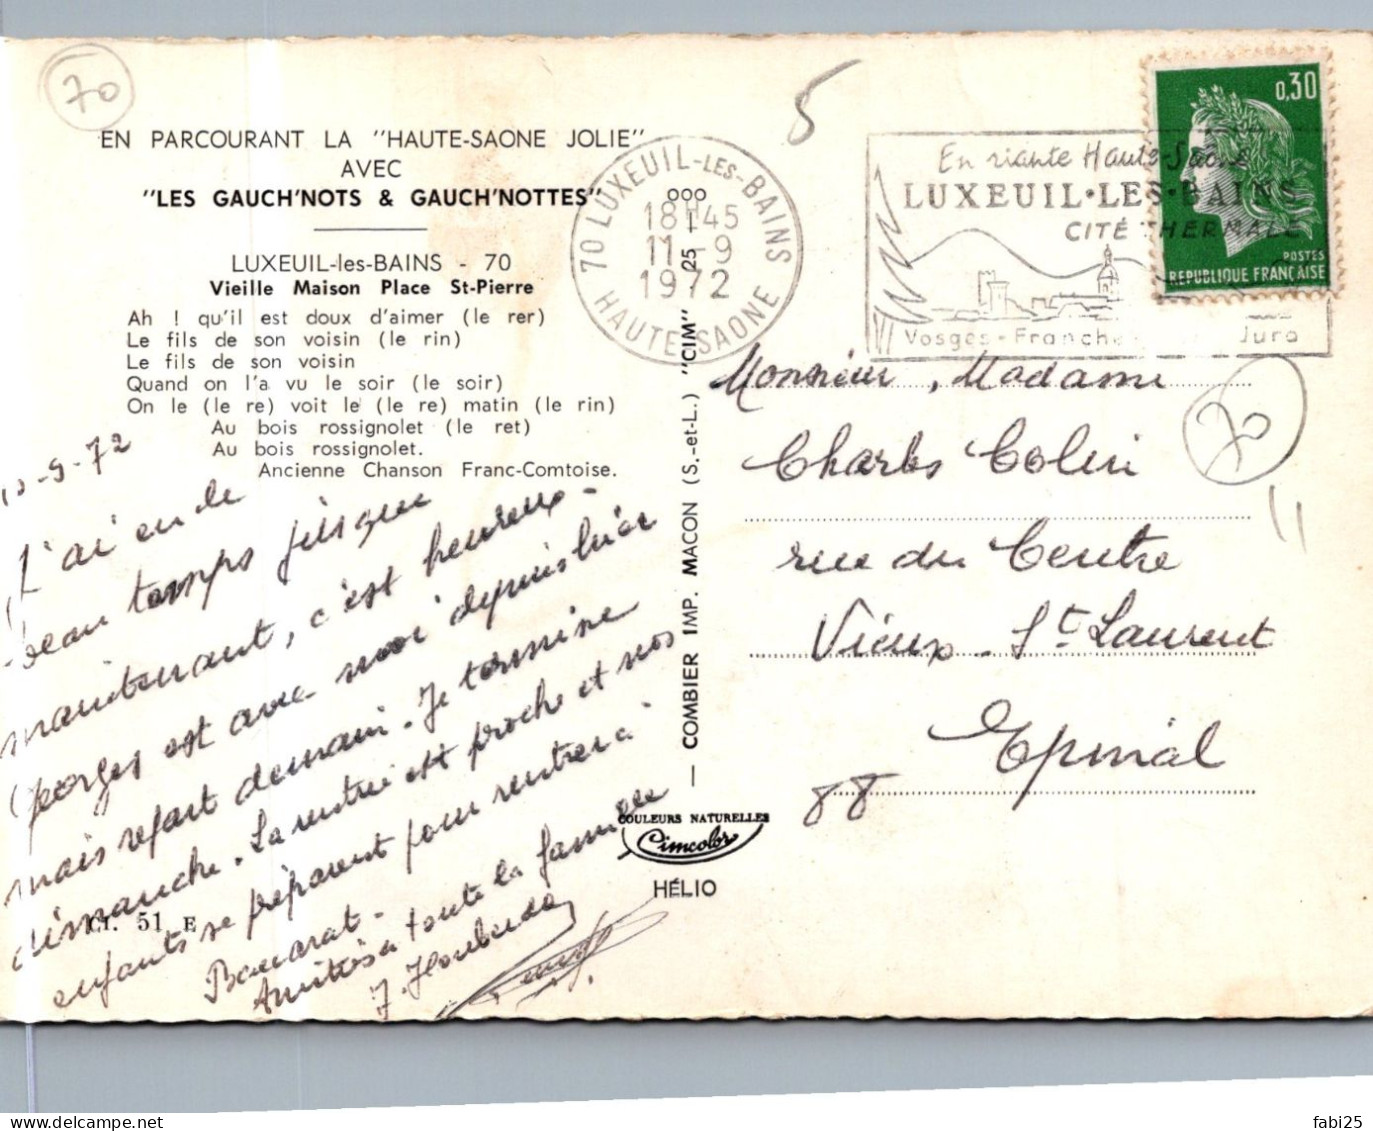 70
EN PARCOURANT LA "HAUTE-SAONE JOLIE"
AVEC
"LES GAUCH'NOTS & GAUCH'NOTTES"
LUXEUIL-les-BAINS - 70
Vieille Maison Place St-Pierre
Ah ! qu'il est doux d'aimer (le rer)
Le fils de son voisin (le rin)
Le fils de son voisin
Quand on l'a vu le soir (le soir)
On le (le re) voit le (le re) matin (le rin)
Au bois rossignolet (le ret)
Au bois rossignolet.
Ancienne Chanson Franc-Comtoise.
10-9-72
J'ai eu de
beau temps jusque
maintenant, c'est heureux-
Georges est avec moi depuis hier
mais repart demain. Je termine
dimanche. La rentrée est proche et nos
enfants se préparent pour rentrer à
Baccarat-
Amitiés à toute la famille
J.
Ct. 51 E
COMBIER IMP. MACON (S.-et-L.) "CIM" 25 - 000
COULEURS NATURELLES
Cimcolor
HÉLIO
70 LUXEUIL-LES-BAINS
18H45
11-9
1972
HAUTE-SAONE
5
En riante Haute-Saône
LUXEUIL·LES·BAINS
CITÉ THERMALE
Vosges - Franche- Jura
0,30
POSTES
REPUBLIQUE FRANÇAISE
Monsieur, Madame
Charles Colin
70
11
rue du Centre
Vieux-St Laurent
Epinal
88
fabi25